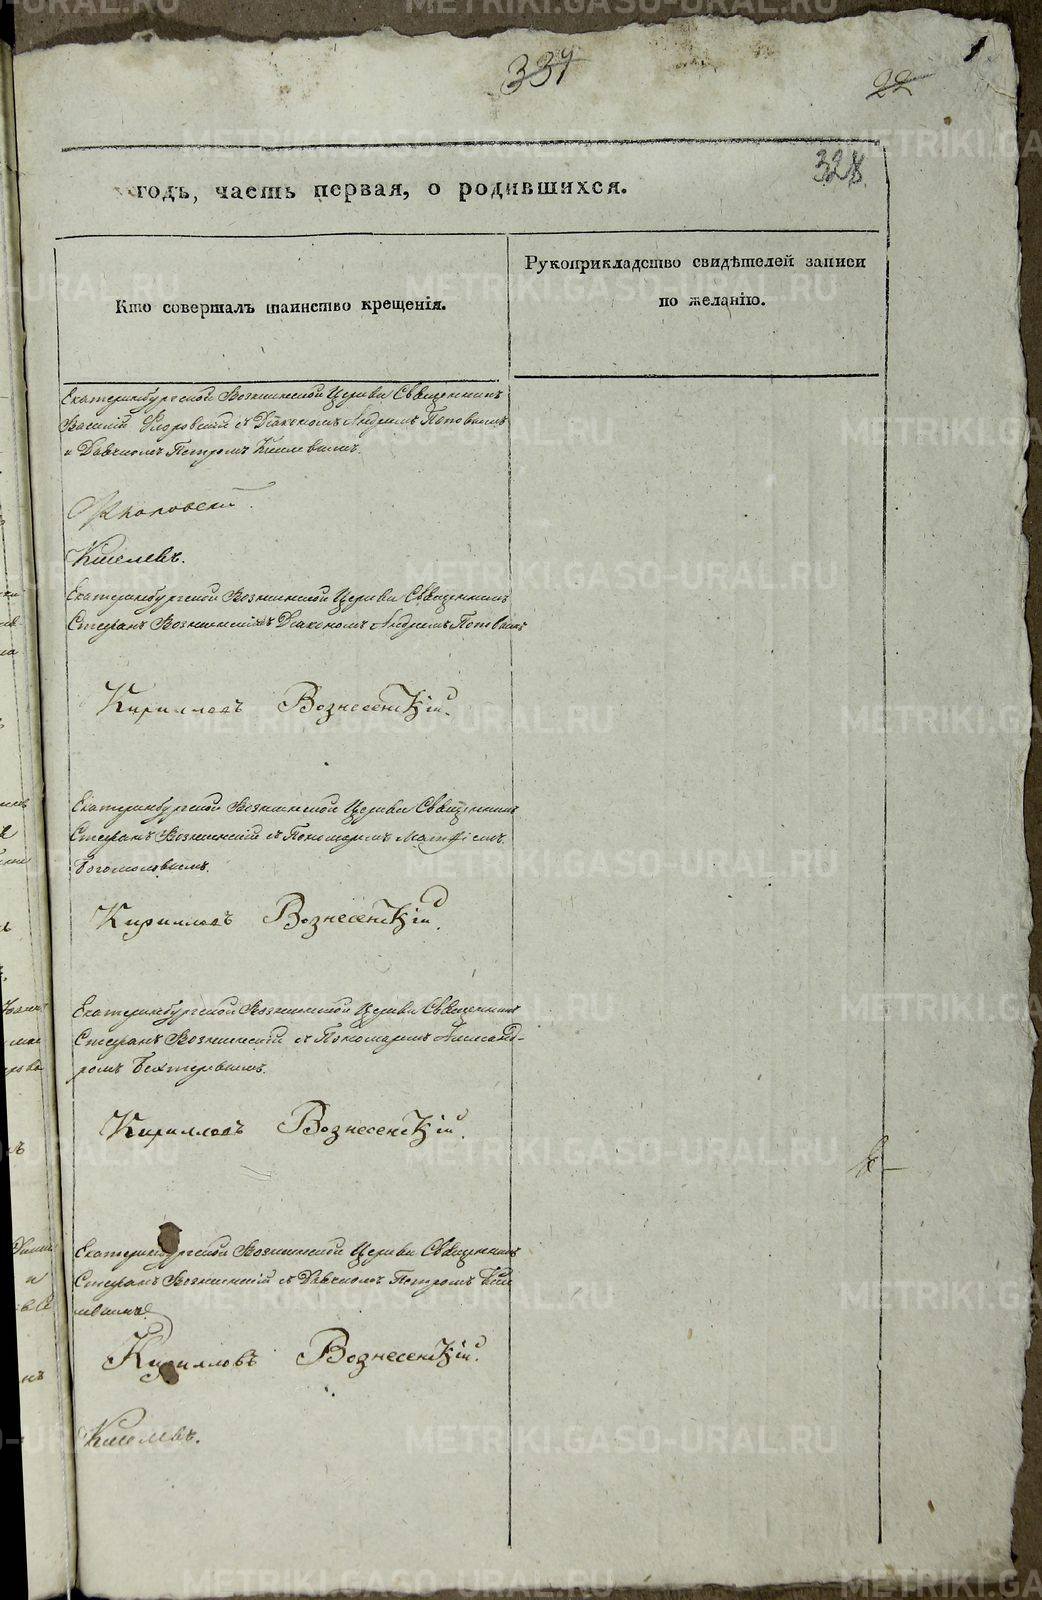 337
22
1
328
годъ, часть первая, о родившихся.
Кто совершалъ таинство крещенія.
Рукоприкладство свидѣтелей записи
по желанію.
Екатеринбургской Вознесенской Церкви Священникъ
Василій съ Діакономъ Андреемъ Поповымъ
и Дьячкомъ Петромъ Киселевымъ.
Киселевъ.
Екатеринбургской Вознесенской Церкви Священникъ
Стефанъ Вознесенскій съ Діакономъ Андреемъ Поповымъ
Кирилловъ Вознесенскій.
Екатеринбургской Вознесенской Церкви Священникъ
Стефанъ Вознесенскій съ Пономаремъ Матфіемъ
Богомоловымъ.
Кирилловъ Вознесенскій.
Екатеринбургской Вознесенской Церкви Священникъ
Стефанъ Вознесенскій съ Пономаремъ Александ-
ромъ Бехтеревымъ.
Кирилловъ Вознесенскій.
Екатеринбургской Вознесенской Церкви Священникъ
Стефанъ Вознесенскій съ Дьячкомъ Петромъ Кисе
левымъ.
Кирилловъ Вознесенскій.
Киселевъ.
METRIKI.GASO-URAL.RU